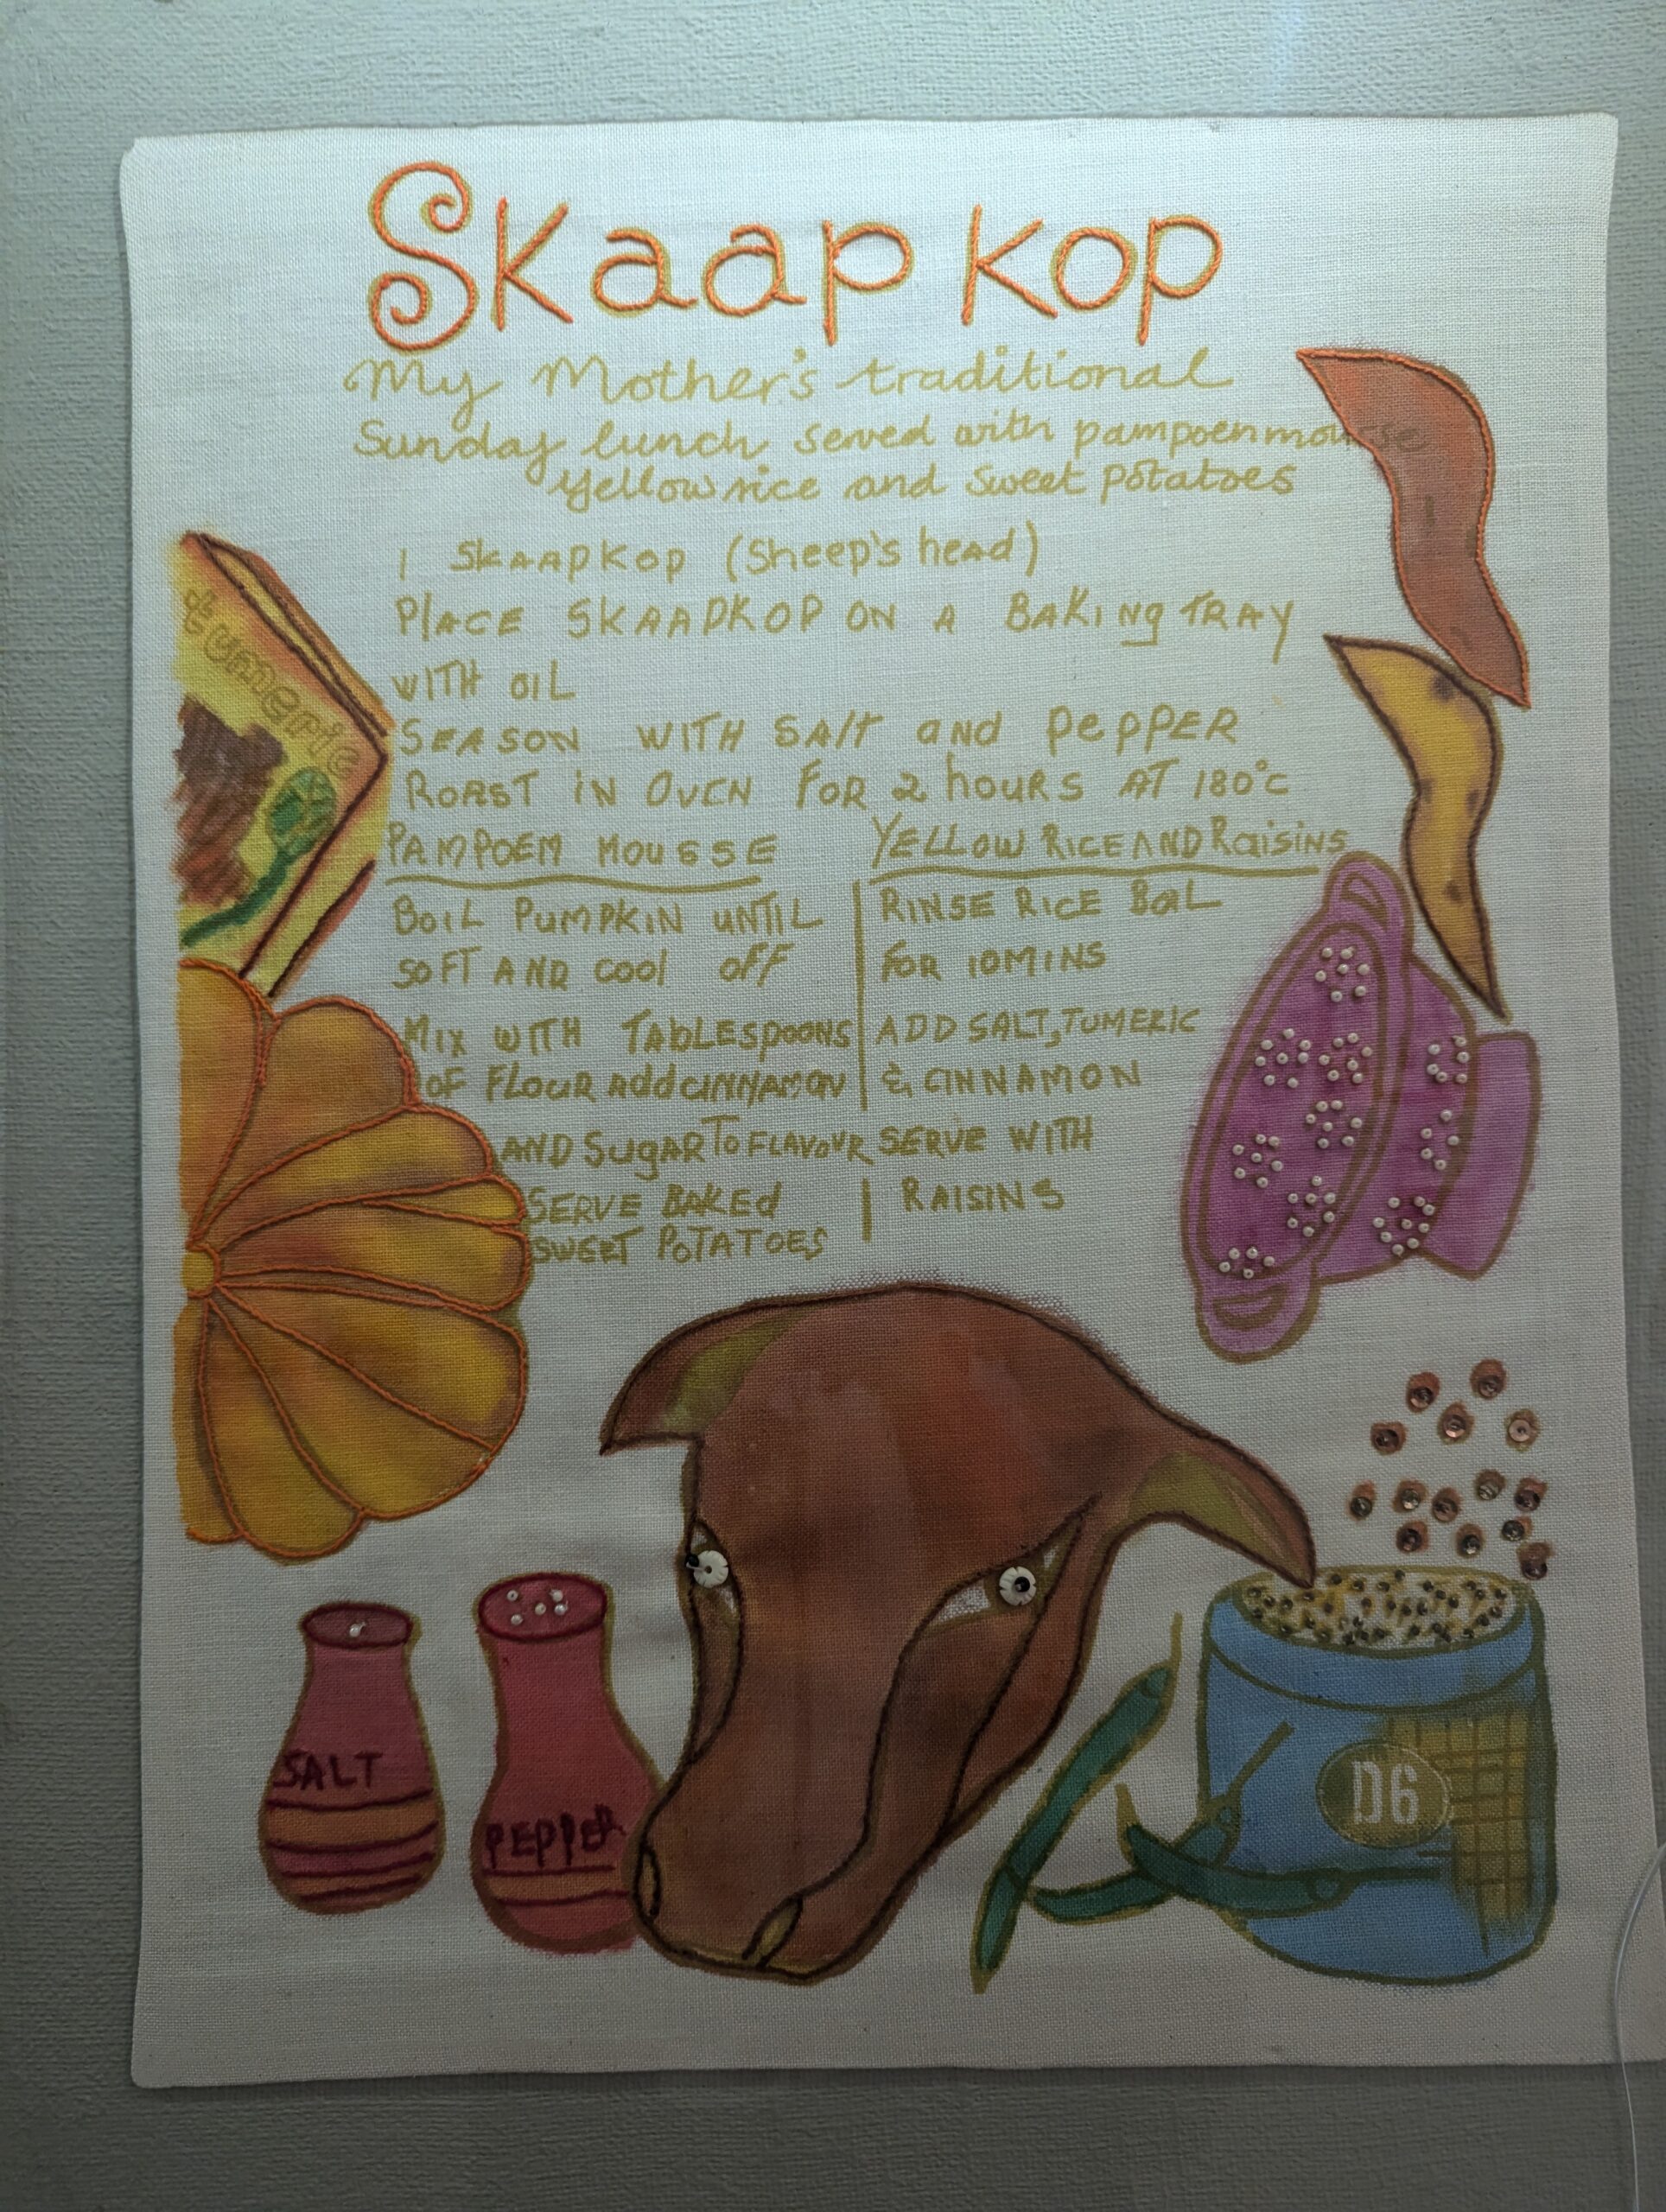 Skaap kop
My Mother's traditional
Sunday lunch served with pampoenmousse
yellow rice and sweet potatoes
1 SKAAPKOP (Sheep's head)
PLACE SKAAPKOP ON A BAKING TRAY
WITH OIL
SEASON WITH SAlt and PePPER
ROAST IN OVEN FOR 2 hOURS AT 180°C
PAMPOEM MOUSSE
BOIL PUMPKIN UNTIL
SOFT AND COOl OFF
MIX WITH TABLESPOONS
OF FLOUR Add CINNAMON
AND SUgAR TO FLAVOUR
SERVE BAKEd
SWEET POTATOES
YELLOW RICE AND RAisiNS
RINSE RICE BOIL
FOR 10 MINS
ADD SALT, TUMERIC
& CINNAMON
SERVE WITH
RAISINS
tumeric
SALT
PEPPER
D6